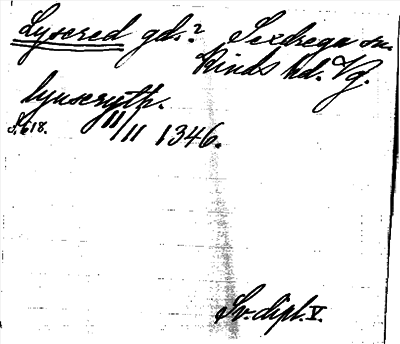 Lysered gds.? Sexdrega sn.
Kinds hd. Vg.
lynscryth.
S. 618. 11/11 1346.
Sv. dipl. V.